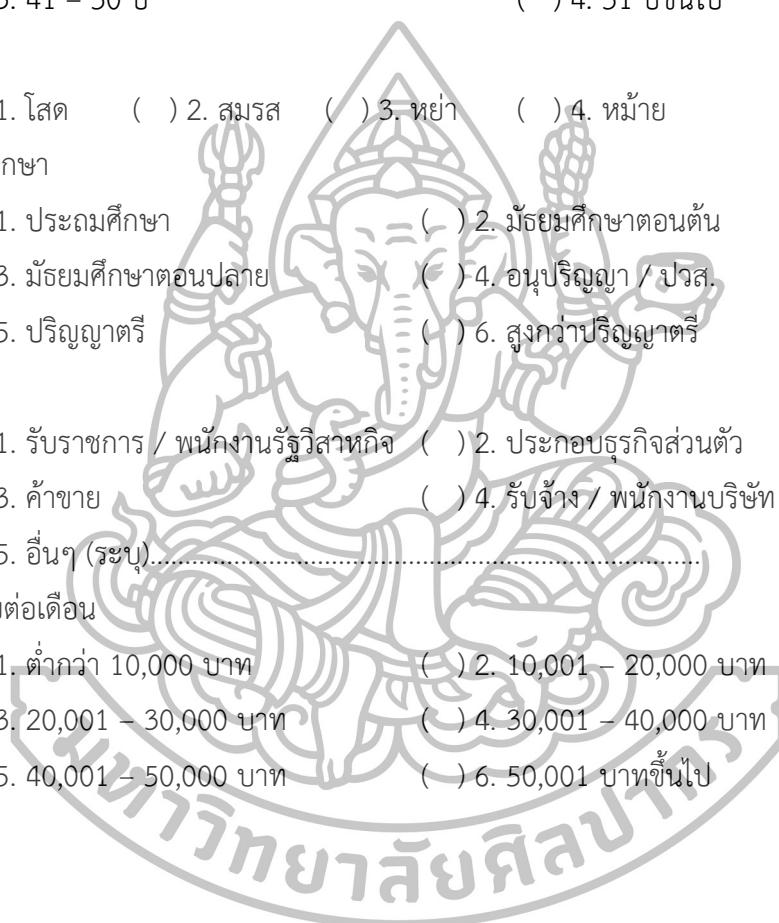 3. 41 – 50 ปี ( ) 4. 51 ปีขึ้นไป
1. โสด ( ) 2. สมรส ( ) 3. หย่า ( ) 4. หม้าย
กษา
1. ประถมศึกษา ( ) 2. มัธยมศึกษาตอนต้น
3. มัธยมศึกษาตอนปลาย ( ) 4. อนุปริญญา / ปวส.
5. ปริญญาตรี ( ) 6. สูงกว่าปริญญาตรี
1. รับราชการ / พนักงานรัฐวิสาหกิจ ( ) 2. ประกอบธุรกิจส่วนตัว
3. ค้าขาย ( ) 4. รับจ้าง / พนักงานบริษัท
5. อื่นๆ (ระบุ)........................................................................
ต่อเดือน
1. ต่ำกว่า 10,000 บาท ( ) 2. 10,001 – 20,000 บาท
3. 20,001 – 30,000 บาท ( ) 4. 30,001 – 40,000 บาท
5. 40,001 – 50,000 บาท ( ) 6. 50,001 บาทขึ้นไป
มหาวิทยาลัยศิลปากร